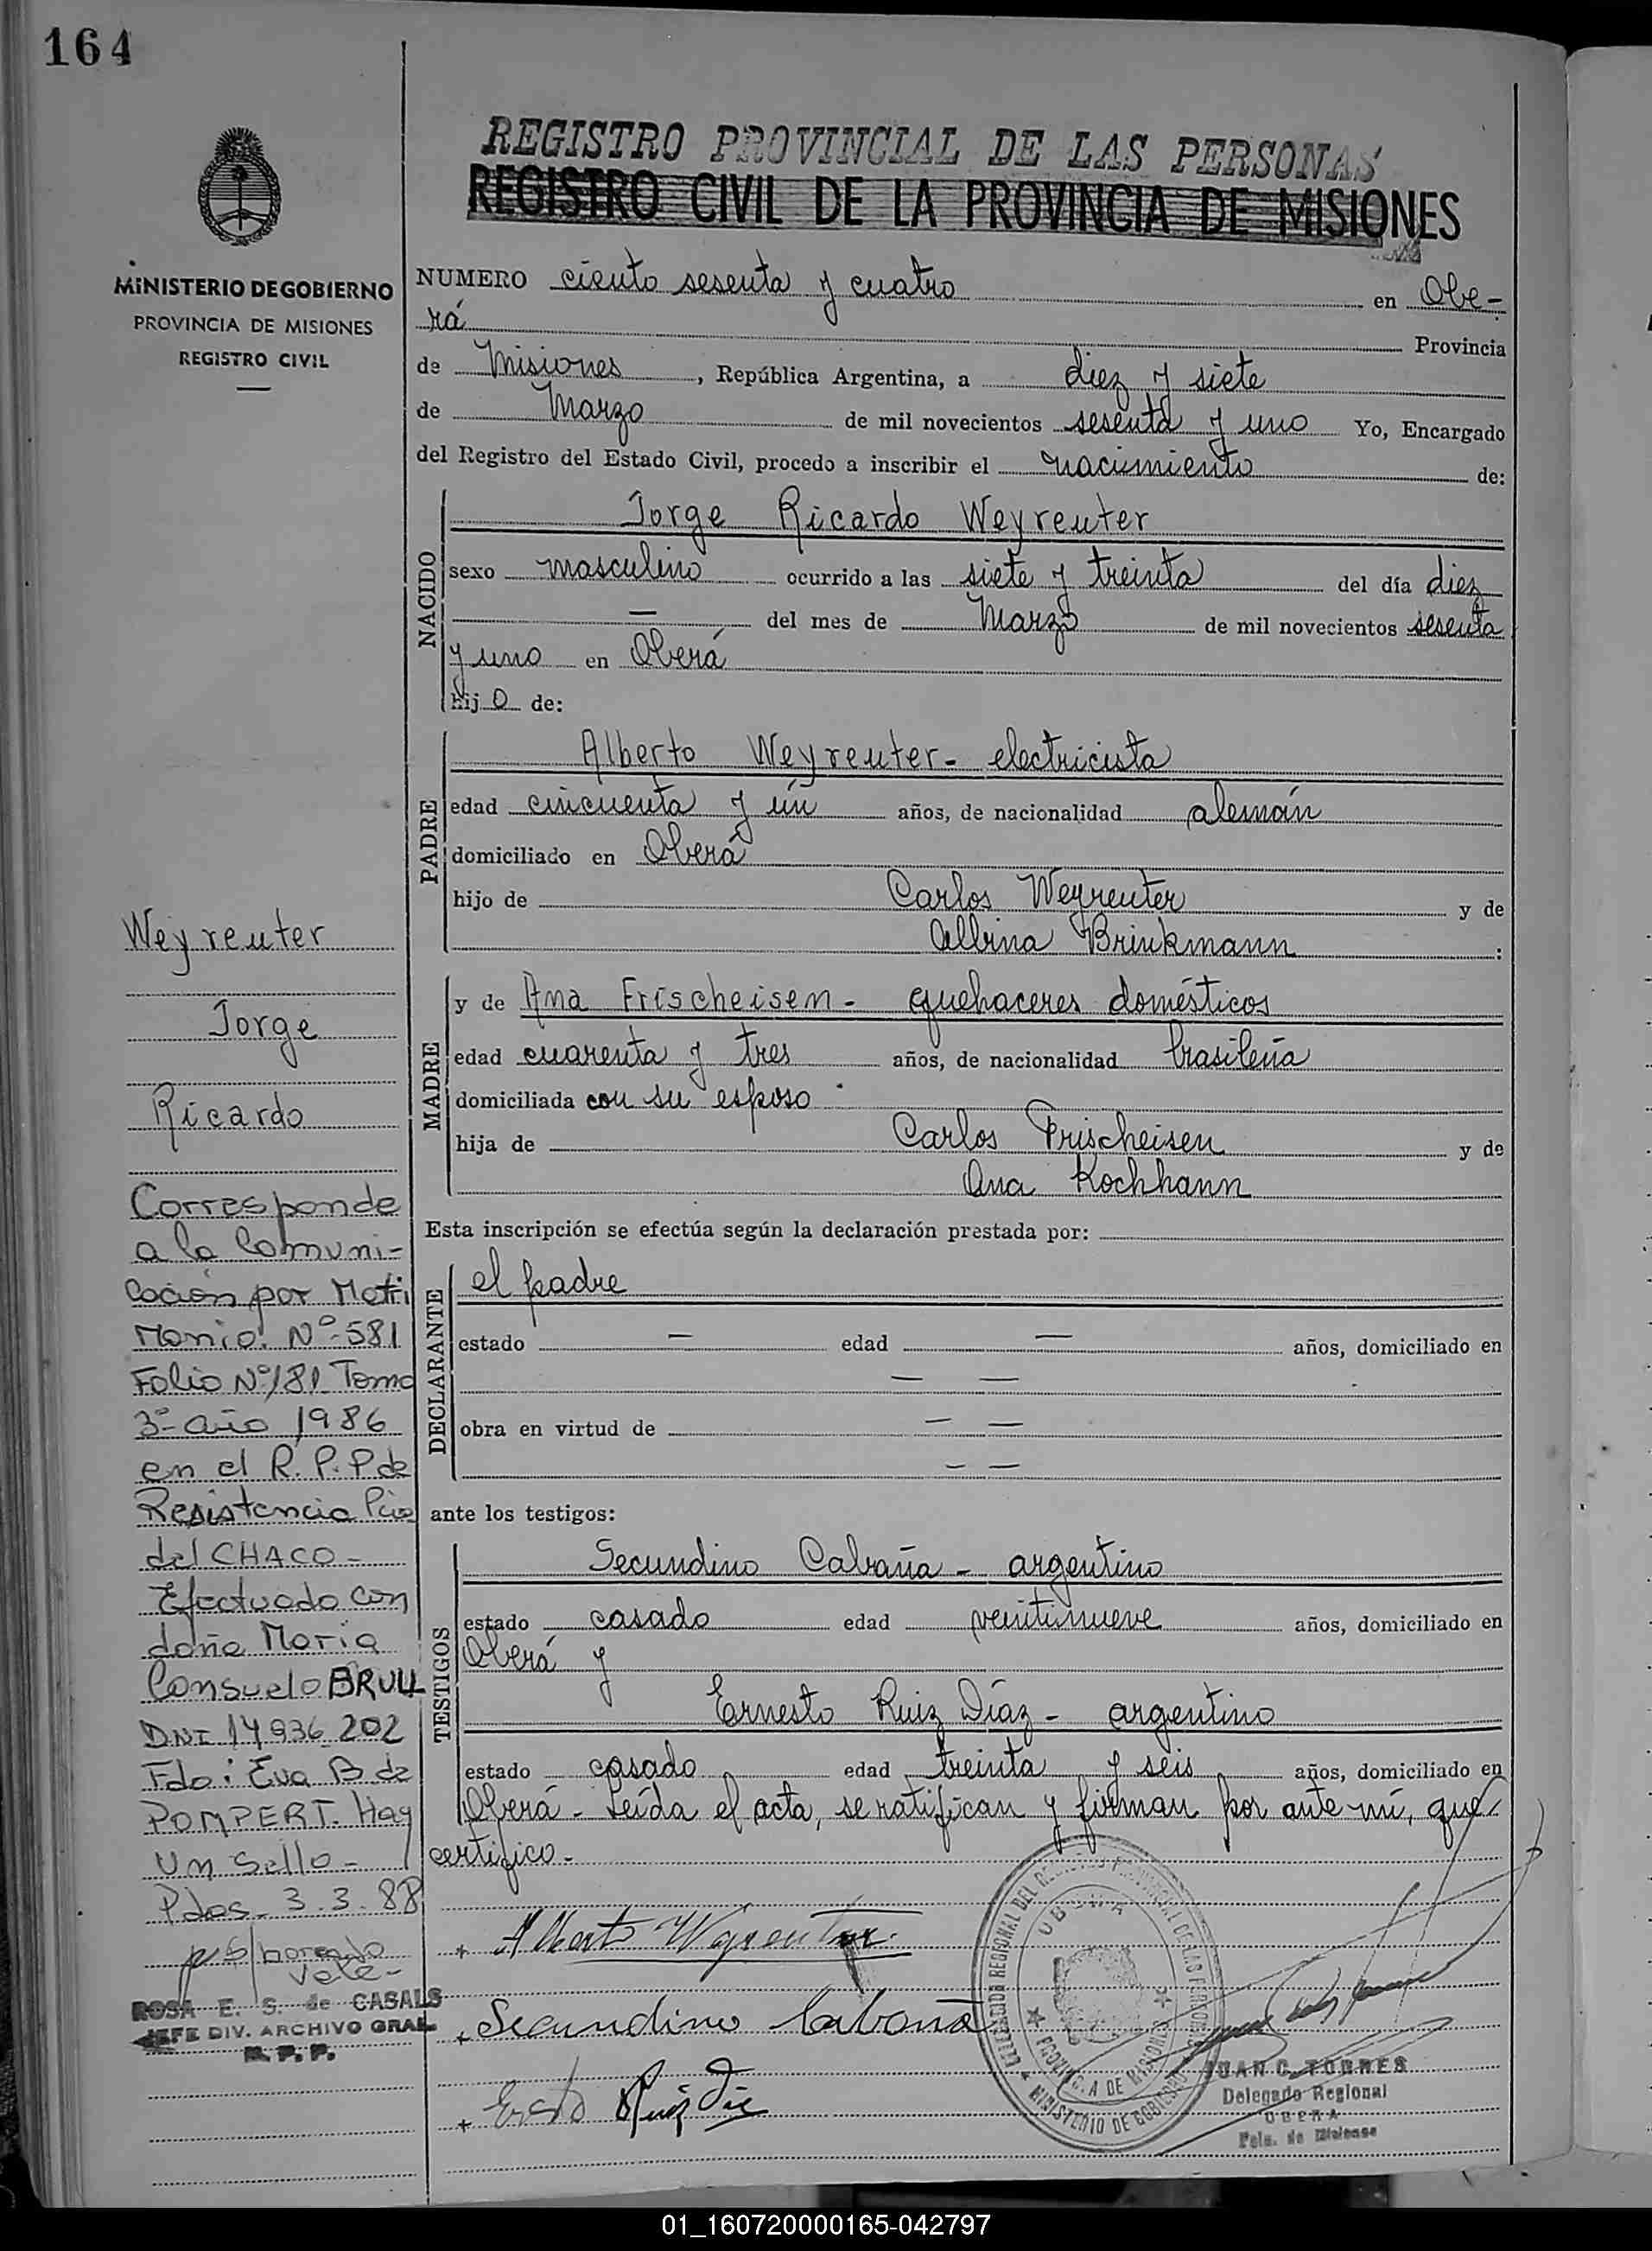 164
REGISTRO PROVINCIAL DE LAS PERSONAS
REGISTRO CIVIL DE LA PROVINCIA DE MISIONES
MINISTERIO DE GOBIERNO
PROVINCIA DE MISIONES
REGISTRO CIVIL
NUMERO ciento sesenta y cuatro en Obe-
rá Provincia
de Misiones, República Argentina, a diez y siete
de Marzo de mil novecientos sesenta y uno Yo, Encargado
del Registro del Estado Civil, procedo a inscribir el nacimiento de:
NACIDO
Jorge Ricardo Weyreuter
sexo masculino ocurrido a las siete y treinta del día diez
— del mes de Marzo de mil novecientos sesenta
y uno en Oberá
hijo de:
PADRE
Alberto Weyreuter - electricista
edad cincuenta y un años, de nacionalidad alemán
domiciliado en Oberá
hijo de Carlos Weyreuter y de
Albina Brinkmann :
MADRE
y de Ana Frischeisen - quehaceres domésticos
edad cuarenta y tres años, de nacionalidad brasileña
domiciliada con su esposo
hija de Carlos Frischeisen y de
Ana Kochhann
Esta inscripción se efectúa según la declaración prestada por:
DECLARANTE
el padre
estado — edad — años, domiciliado en
— —
obra en virtud de — —
— —
ante los testigos:
TESTIGOS
Secundino Cabaña - argentino
estado casado edad veintinueve años, domiciliado en
Oberá y
Ernesto Ruiz Díaz - argentino
estado casado edad treinta y seis años, domiciliado en
Oberá - Leída el acta, se ratifican y firman por ante mí, que
certifico -
+ Alberto Weyreuter
+ Secundino Cabaña
+ Ruiz Di
OBERA
PROVINCIA DE MISIONES
MINISTERIO DE GOBIERNO
JUAN C. TORRES
Delegado Regional
OBERA
Pcia. de Misiones
Weyreuter
Jorge
Ricardo
Corresponde
a la Comuni-
cación por Matri
Monio. Nº-581
Folio Nº181 Tomo
3º- año 1986
en el R. P. P de
Resistencia Pcia
del CHACO -
Efectuado con
doña María
Consuelo BRULL
DNI 14936.202
Fdo: Eva B de
POMPERT. Hay
Un Sello -
Pdas. 3.3.88
borrado
vale -
ROSA E. S. de CASALS
JEFE DIV. ARCHIVO GRAL
R. P. P.
01_160720000165-042797